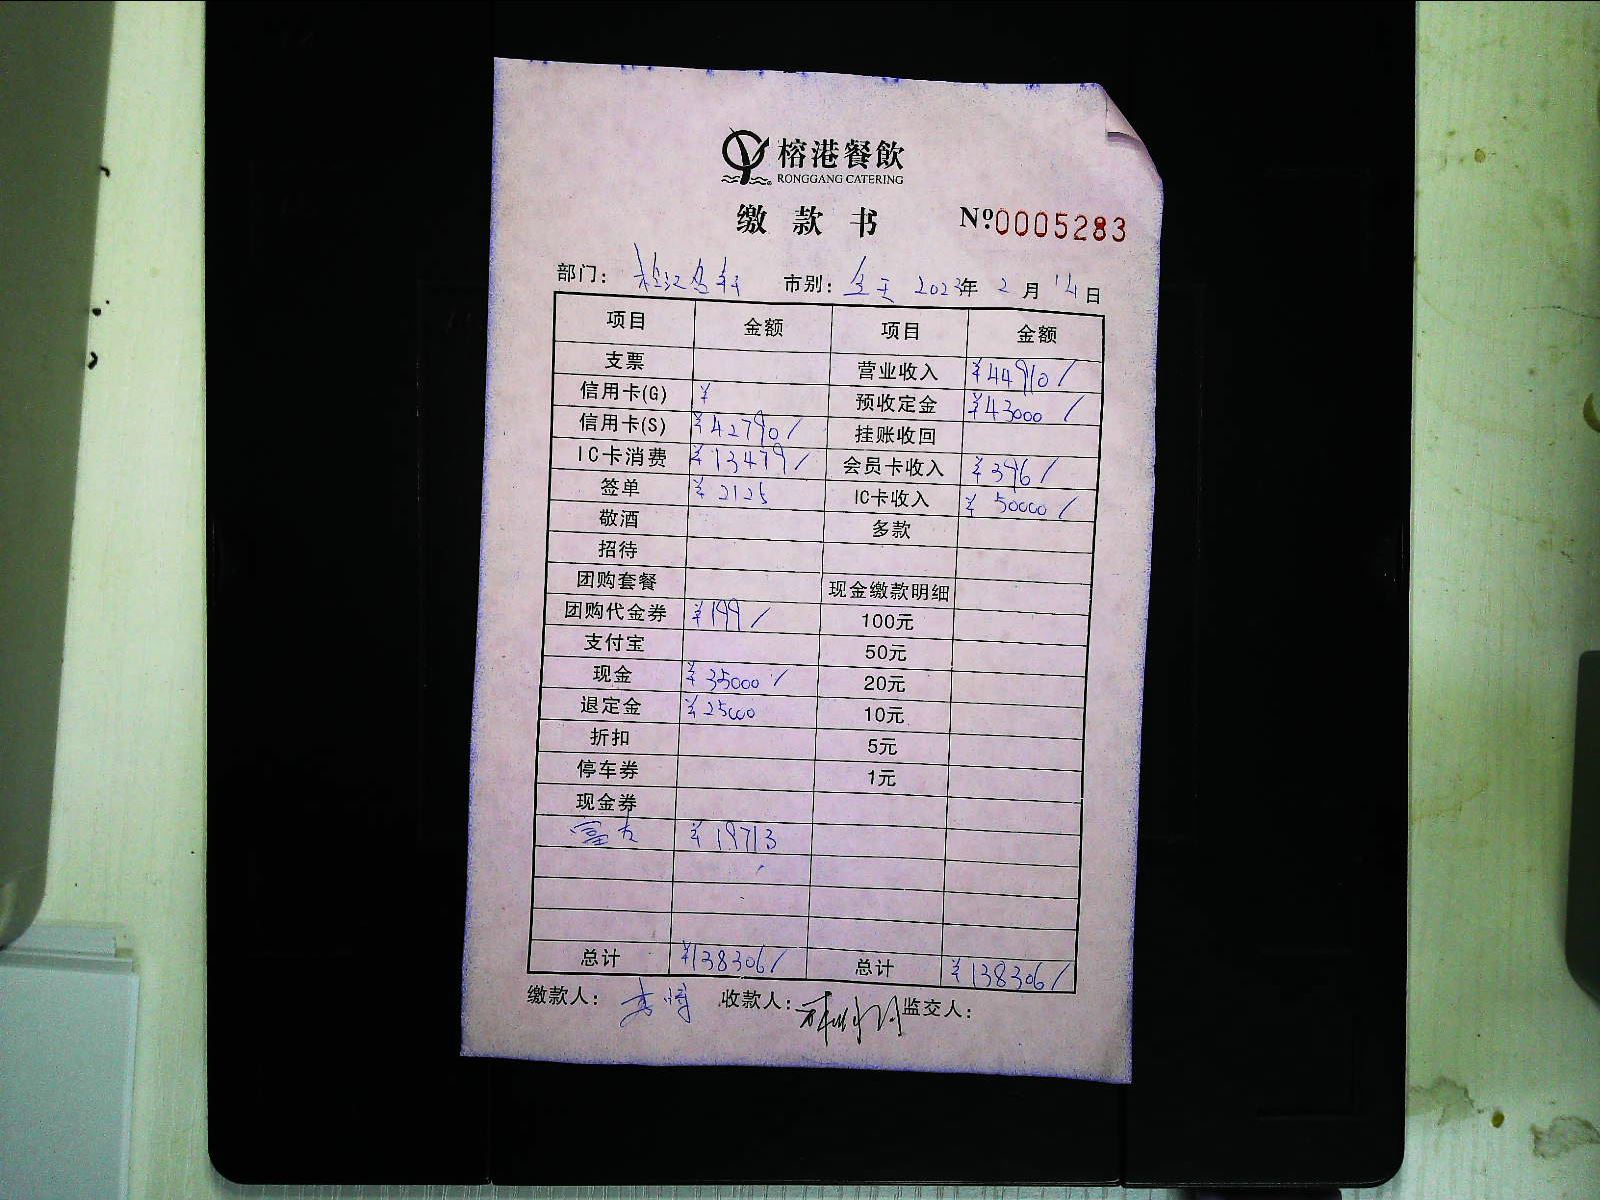 榕港餐飲
RONGGANG CATERING
缴款书 №0005283
部门: 松江名轩 市别: 全天 2023年 2月 14日
项目 金额 项目 金额
支票 营业收入 ¥44910/
信用卡(G) ¥ 预收定金 ¥43000/
信用卡(S) ¥42790/ 挂账收回
IC卡消费 ¥13479/ 会员卡收入 ¥396/
签单 ¥2125 IC卡收入 ¥50000/
敬酒 多款
招待
团购套餐 现金缴款明细
团购代金券 ¥199/ 100元
支付宝 50元
现金 ¥35000/ 20元
退定金 ¥25000 10元
折扣 5元
停车券 1元
现金券
富友 ¥19713
总计 ¥138306/ 总计 ¥138306/
缴款人: 收款人: 监交人: